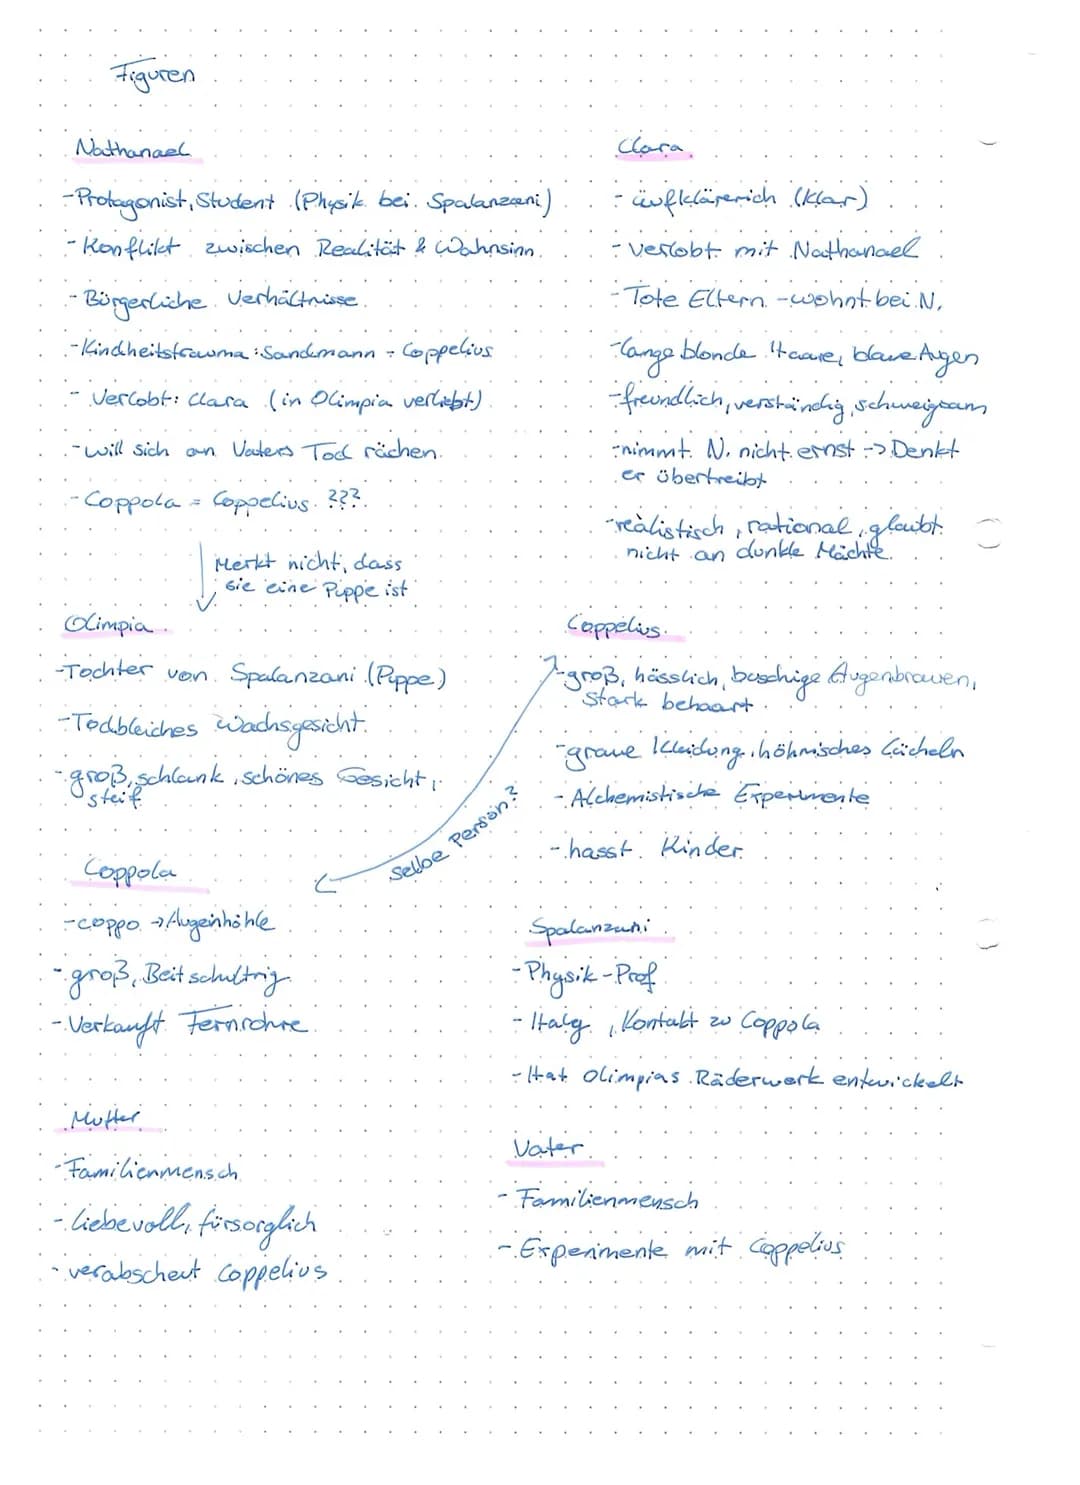 Figuren
Nathanael
-Protagonist, Student (Physik bei Spalanzani)
-Konflikt zwischen Realität & Wahnsinn
-Bürgerliche Verhältnisse
-Kindheitstrauma: Sandmann - Coppelius
- Verlobt: Clara (in Olimpia verliebt)
-will sich an Vaters Tod rächen
-Coppola = Coppelius ???
Merkt nicht, dass
sie eine Puppe ist
Clara
- aufklärerich (klar)
- verlobt mit Nathanael
-Tote Eltern - wohnt bei N.
-lange blonde Haare, blaue Augen
-freundlich, verständig, schweigsam
-nimmt N. nicht ernst -> Denkt
er übertreibt
-realistisch, rational, glaubt
nicht an dunkle Mächte
Olimpia
-Tochter von Spalanzani (Puppe)
-Todbleiches Wachsgesicht
-groß, schlank, schönes Gesicht,
steif
Coppelius
-groß, hässlich, buschige Augenbrauen,
Stark behaart
-graue Kleidung, höhmisches Lächeln
- Alchemistische Experimente
-hasst Kinder
Selbe Person?
Coppola
-coppo -> Augenhöhle
-groß, Beitschultrig
-Verkauft Fernrohre
Spalanzani
-Physik-Prof
- Italy, Kontakt zu Coppola
-Hat Olimpias Räderwerk entwickelt
Mutter
-Familienmensch
-liebevoll, fürsorglich
-verabscheut Coppelius
Vater
- Familienmensch
- Experimente mit Coppelius